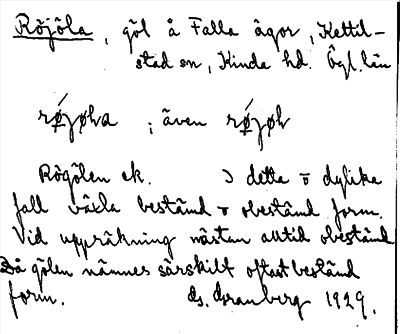 Röjöla, göl å Falla ägor, Kettil-
stad sn, Kinda hd. Ögl. län
; även
Rögölen ek. I detta o dylika
fall växla bestämd o obestämd form.
Vid uppräkning nästan alltid obestämd
Då gölen nämnes särskilt oftast bestämd
form. ds. Granberg 1929.